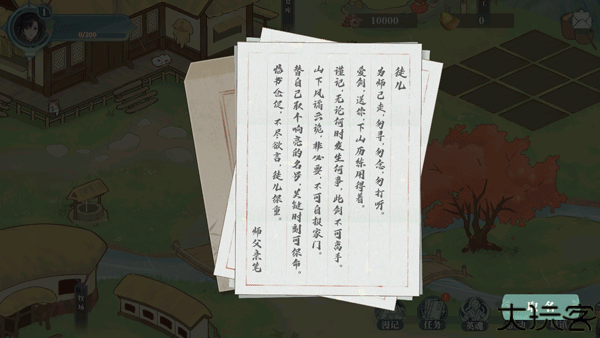 1
0/200
10000
0
徒儿
为师已走,勿寻,勿念,勿打听。
爱剑送你,下山历练用得着。
谨记,无论何时发生何事,此剑不可离手。
山下风谲云诡,非必要,不可自报家门。
替自己取个响亮的名号,关键时刻可保命。
临书仓促,不尽欲言,徒儿保重。
师父亲笔
牧场
漫记
任务
英魂
大玩客